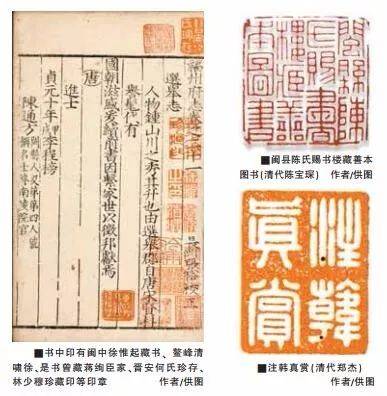 福州府志卷之
選舉志
人物鍾山川之秀其升也由選舉郡自唐宋
舉髦代有
國朝滋盛矣續前書因繫家世以徵邦獻焉
唐
進士
貞元十年甲戌李程榜
陳通方
■书中印有闽中徐惟起藏书、鳌峰清
啸徐、是书曾藏蒋绚臣家、晋安何氏珍存、
林少穆珍藏印等印章
作者/供图
閩縣陳
氏賜書
樓藏善
本圖書
■闽县陈氏赐书楼藏善本
图书(清代陈宝琛) 作者/供图
注韓
真賞
■注韩真赏(清代郑杰)
作者/供图